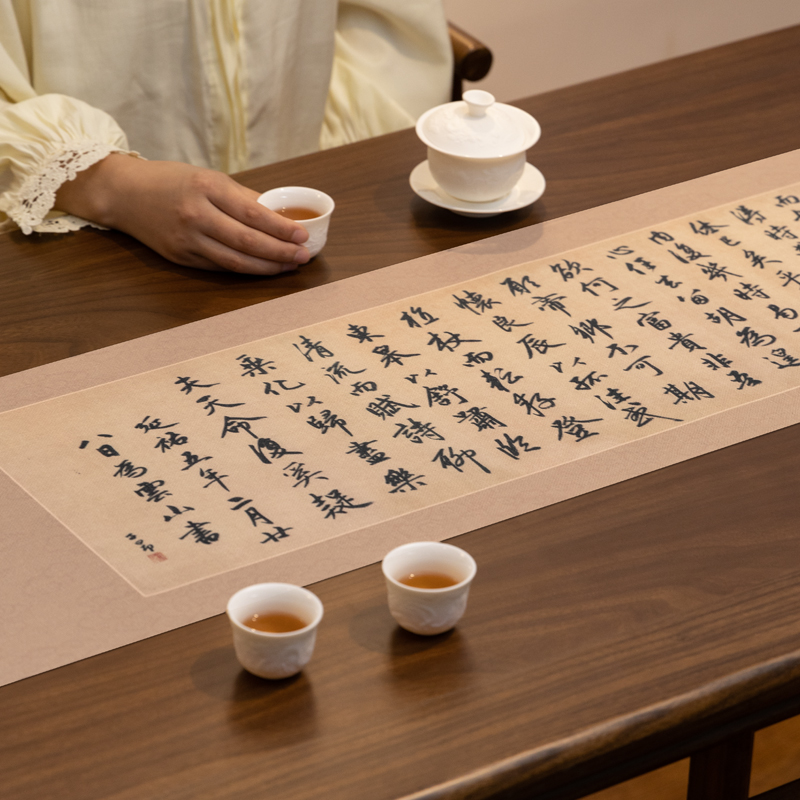 而
得時
休已矣乎
內復幾時曷
心任去留胡為遑
欲何之富貴非吾
願帝鄉不可期
懷良辰以孤往或
植杖而耘耔登
東皋以舒嘯臨
清流而賦詩聊
乘化以歸盡樂
夫天命復奚疑
延祐五年二月廿
八日為雲山書
子昂